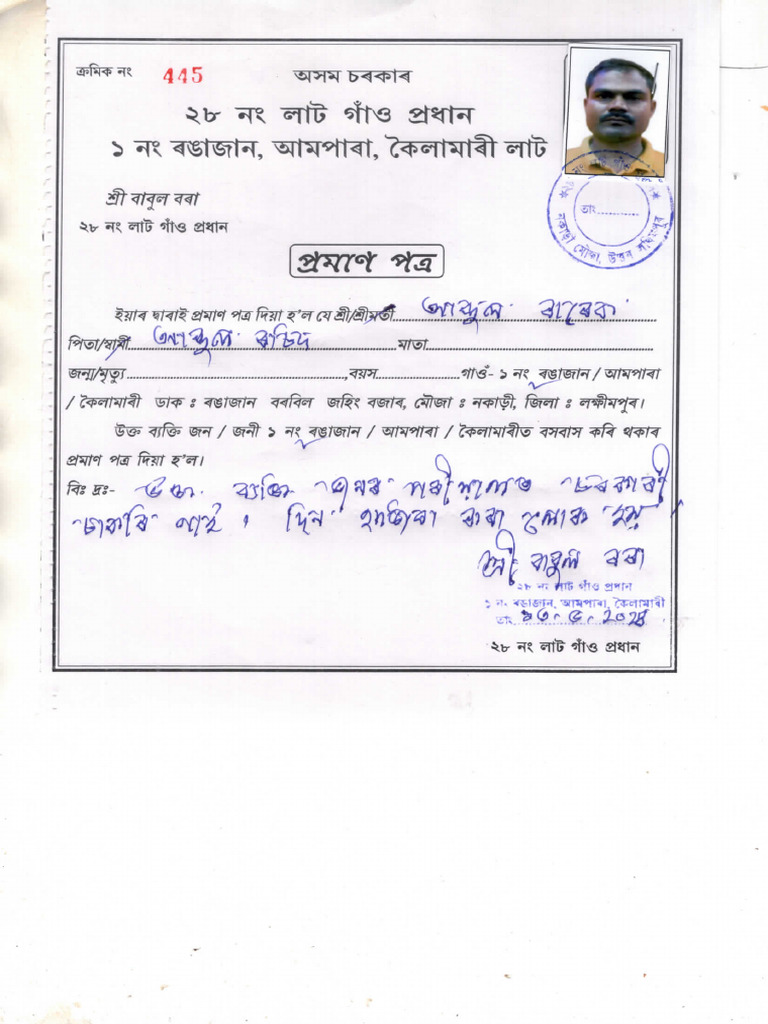 ক্ৰমিক নং 445 অসম চৰকাৰ
২৮ নং লাট গাঁও প্ৰধান
১ নং ৰঙাজান, আমপাৰা, কৈলামাৰী লাট
শ্ৰী বাবুল বৰা
২৮ নং লাট গাঁও প্ৰধান
তাং
নকাড়ী মৌজা, উত্তৰ লখিমপুৰ
প্ৰমাণ পত্ৰ
ইয়াৰ দ্বাৰাই প্ৰমাণ পত্ৰ দিয়া হ'ল যে শ্ৰী/শ্ৰীমতী আব্দুল বাৰেক
পিতা/স্বামী আব্দুল ৰচিদ মাতা
জন্ম/মৃত্যু ,বয়স গাওঁ- ১ নং ৰঙাজান / আমপাৰা
/ কৈলামাৰী ডাক : ৰঙাজান বৰবিল জহিং বজাৰ, মৌজা : নকাড়ী, জিলা : লক্ষীমপুৰ।
উক্ত ব্যক্তি জন / জনী ১ নং ৰঙাজান / আমপাৰা / কৈলামাৰীত বসবাস কৰি থকাৰ
প্ৰমাণ পত্ৰ দিয়া হ'ল।
বিঃ দ্ৰঃ- উক্ত ব্যক্তি জনৰ চৰকাৰী
চাকৰি নাই। দিন হাজিৰা কৰা লোক হয়
শ্ৰী বাবুল বৰা
২৮ নং লাট গাঁও প্ৰধান
১ নং ৰঙাজান, আমপাৰা, কৈলামাৰী
তাং
২৮ নং লাট গাঁও প্ৰধান